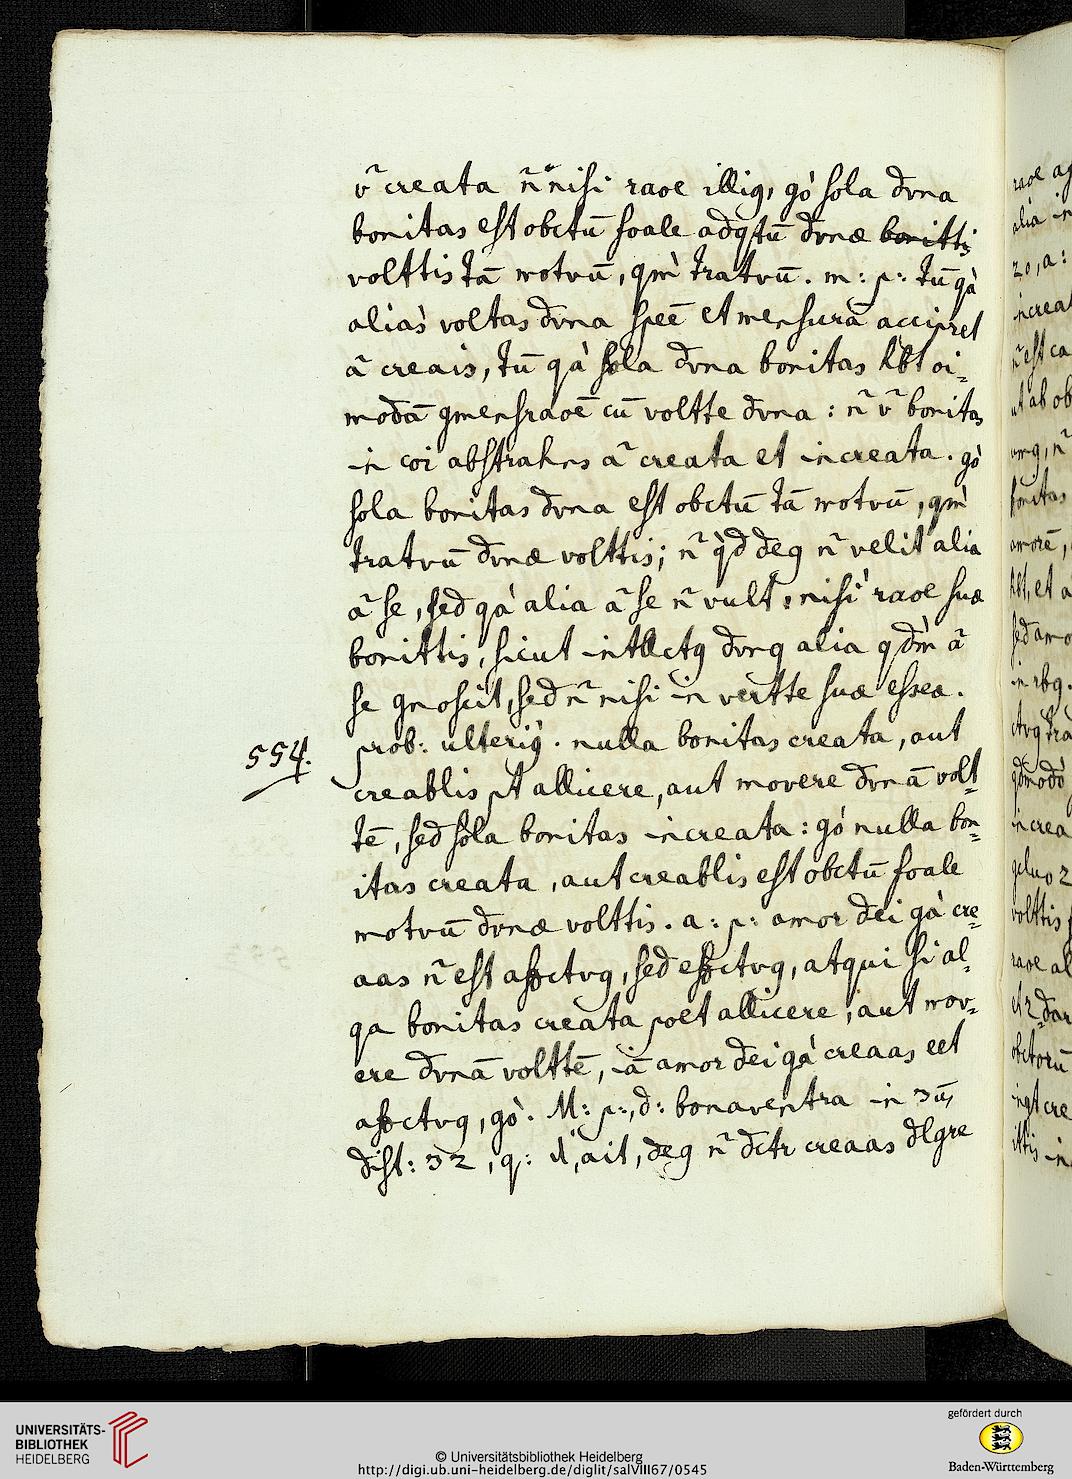 v̄ creata n̄ nisi raõe illig, gò sola dvna
bonitas est obctū foale adqtū dvnæ bonittis
volttis tā motvū, qm̀ tratvū. m: p: tū qà
aliàs voltas dvna speē et mensurā acciperet
ā creais, tū qà sola dvna bonitas hbt oi=
modā gmensraoē cū voltte dvna: n̄ v̄ bonitas
in coi abstrahens ā creata et increata. gò
sola bonitas dvna est obctū tā motvū, qm̀
tratvū dvnæ volttis; n̄ qd deg n̄ velit alia
ā se, sed qà alia ā se n̄ vult, nisi raoe suæ
bonittis, sicut intllctg dvng alia qdm̀ ā
se gnoscit, sed n̄ nisi in vertte suæ esseæ.
554. prob: ulterig̀. nulla bonitas creata, aut
creablis pt allicere, aut movere dvnā volt=
tē, sed sola bonitas increata: gò nulla bon=
itas creata, aut creablis est obctū foale
motvū dvnæ volttis. a: p: amor dei gà cre=
aas n̄ est affctvg, sed effctvg, atqui si al=
qa bonitas creata poet allicere, aut mov=
ere dvnā volttē, iā amor dei gà creaas eet
affctvg, gò. M: p:, d: bonaventra in 3ū,
dist: 32, q: 1, ait, deg n̄ dctr creaas dlgre
UNIVERSITÄTS-
BIBLIOTHEK
HEIDELBERG
© Universitätsbibliothek Heidelberg
http://digi.ub.uni-heidelberg.de/diglit/salVIII67/0545
gefördert durch
Baden-Württemberg